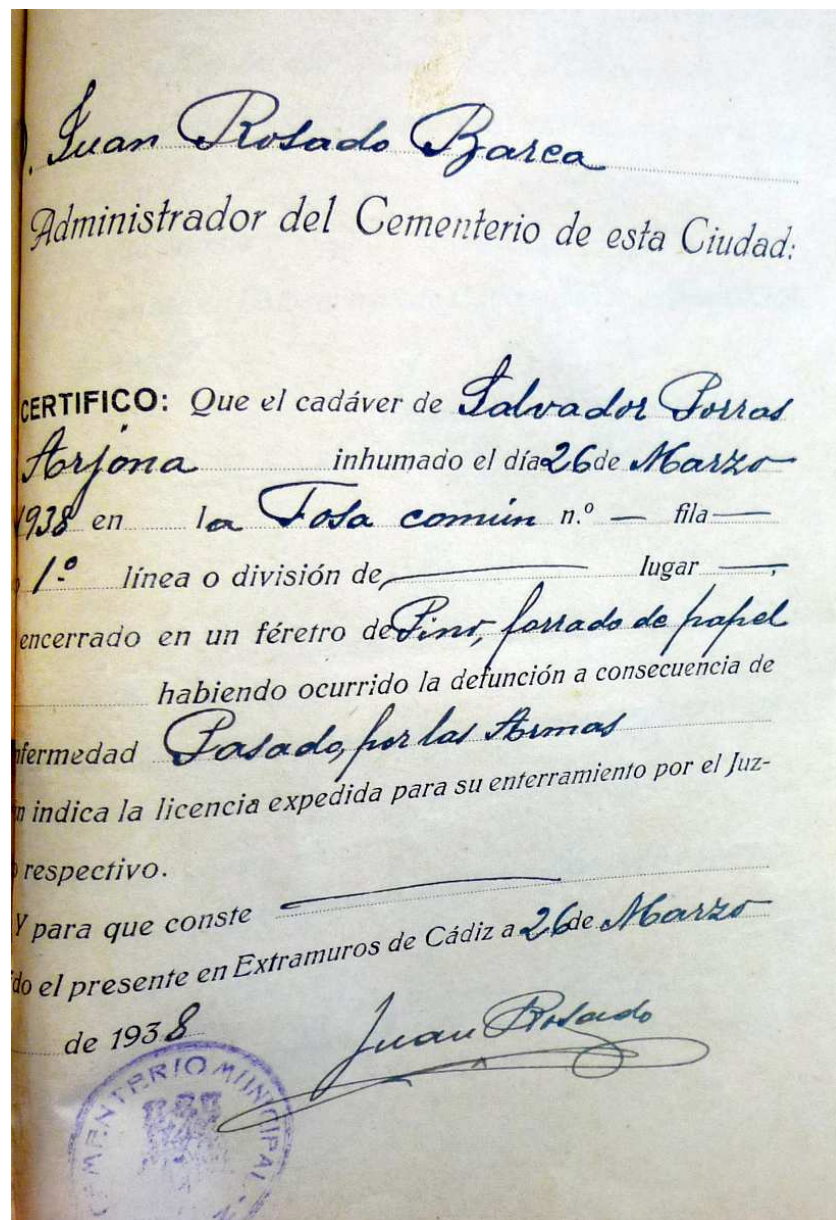 D. Juan Rosado Barca
Administrador del Cementerio de esta Ciudad:
CERTIFICO: Que el cadáver de Salvador Porras
Arjona inhumado el día 26 de Marzo
1938 en la Fosa común n.º — fila —
1.º línea o división de — lugar —,
encerrado en un féretro de Pino, forrado de papel
habiendo ocurrido la defunción a consecuencia de
nfermedad Pasado, por las Armas
n indica la licencia expedida para su enterramiento por el Juz-
o respectivo.
Y para que conste —
do el presente en Extramuros de Cádiz a 26 de Marzo
de 1938
Juan Rosado
CEMENTERIO MUNICIPAL